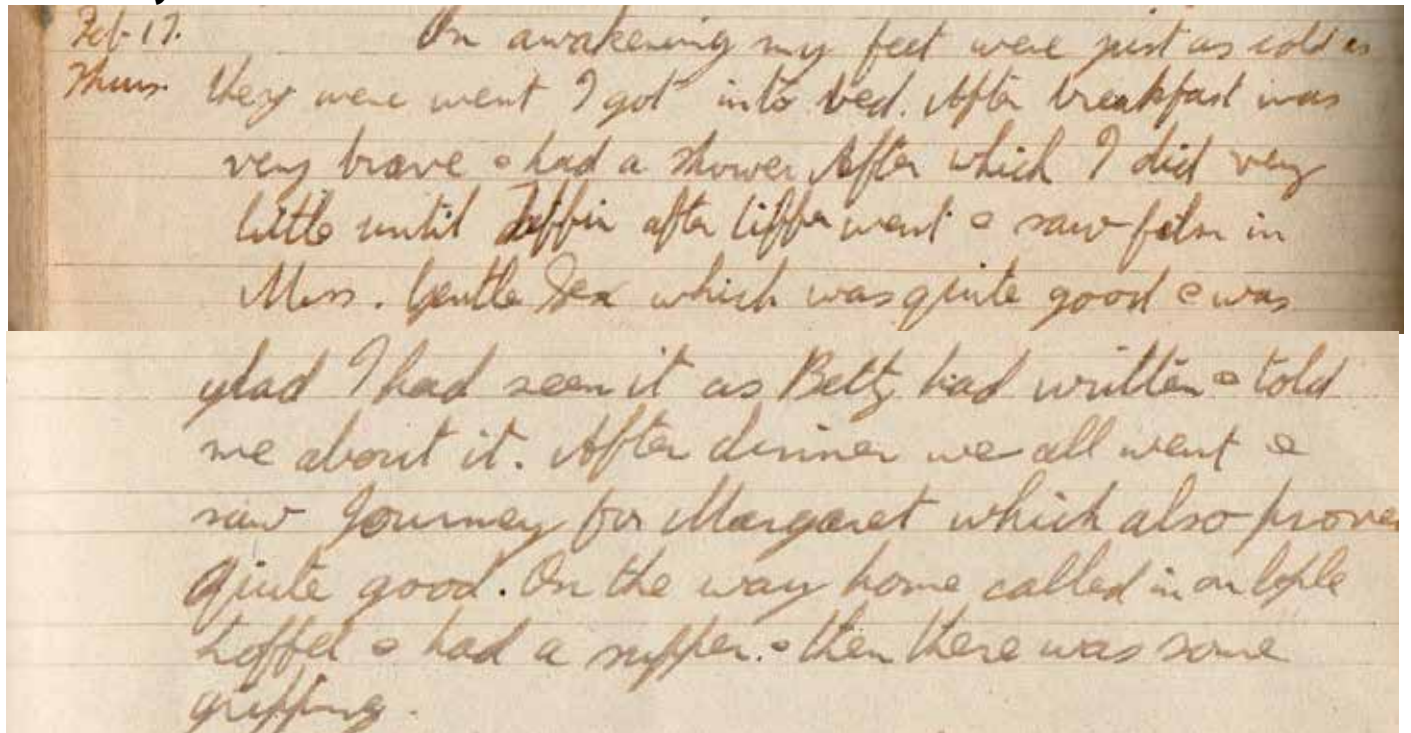 Feb-17. On awakening my feet were just as cold as
Thurs. they were went I got into bed. After breakfast was
very brave & had a shower After which I did very
little until Tiffin after tiffin went & saw film in
Mess. Gentle Sex which was quite good & was
glad I had seen it as Betty had written & told
me about it. After dinner we all went &
saw Journey for Margaret which also prove
quite good. On the way home called in on
& had a supper. & then there was some
griffing.